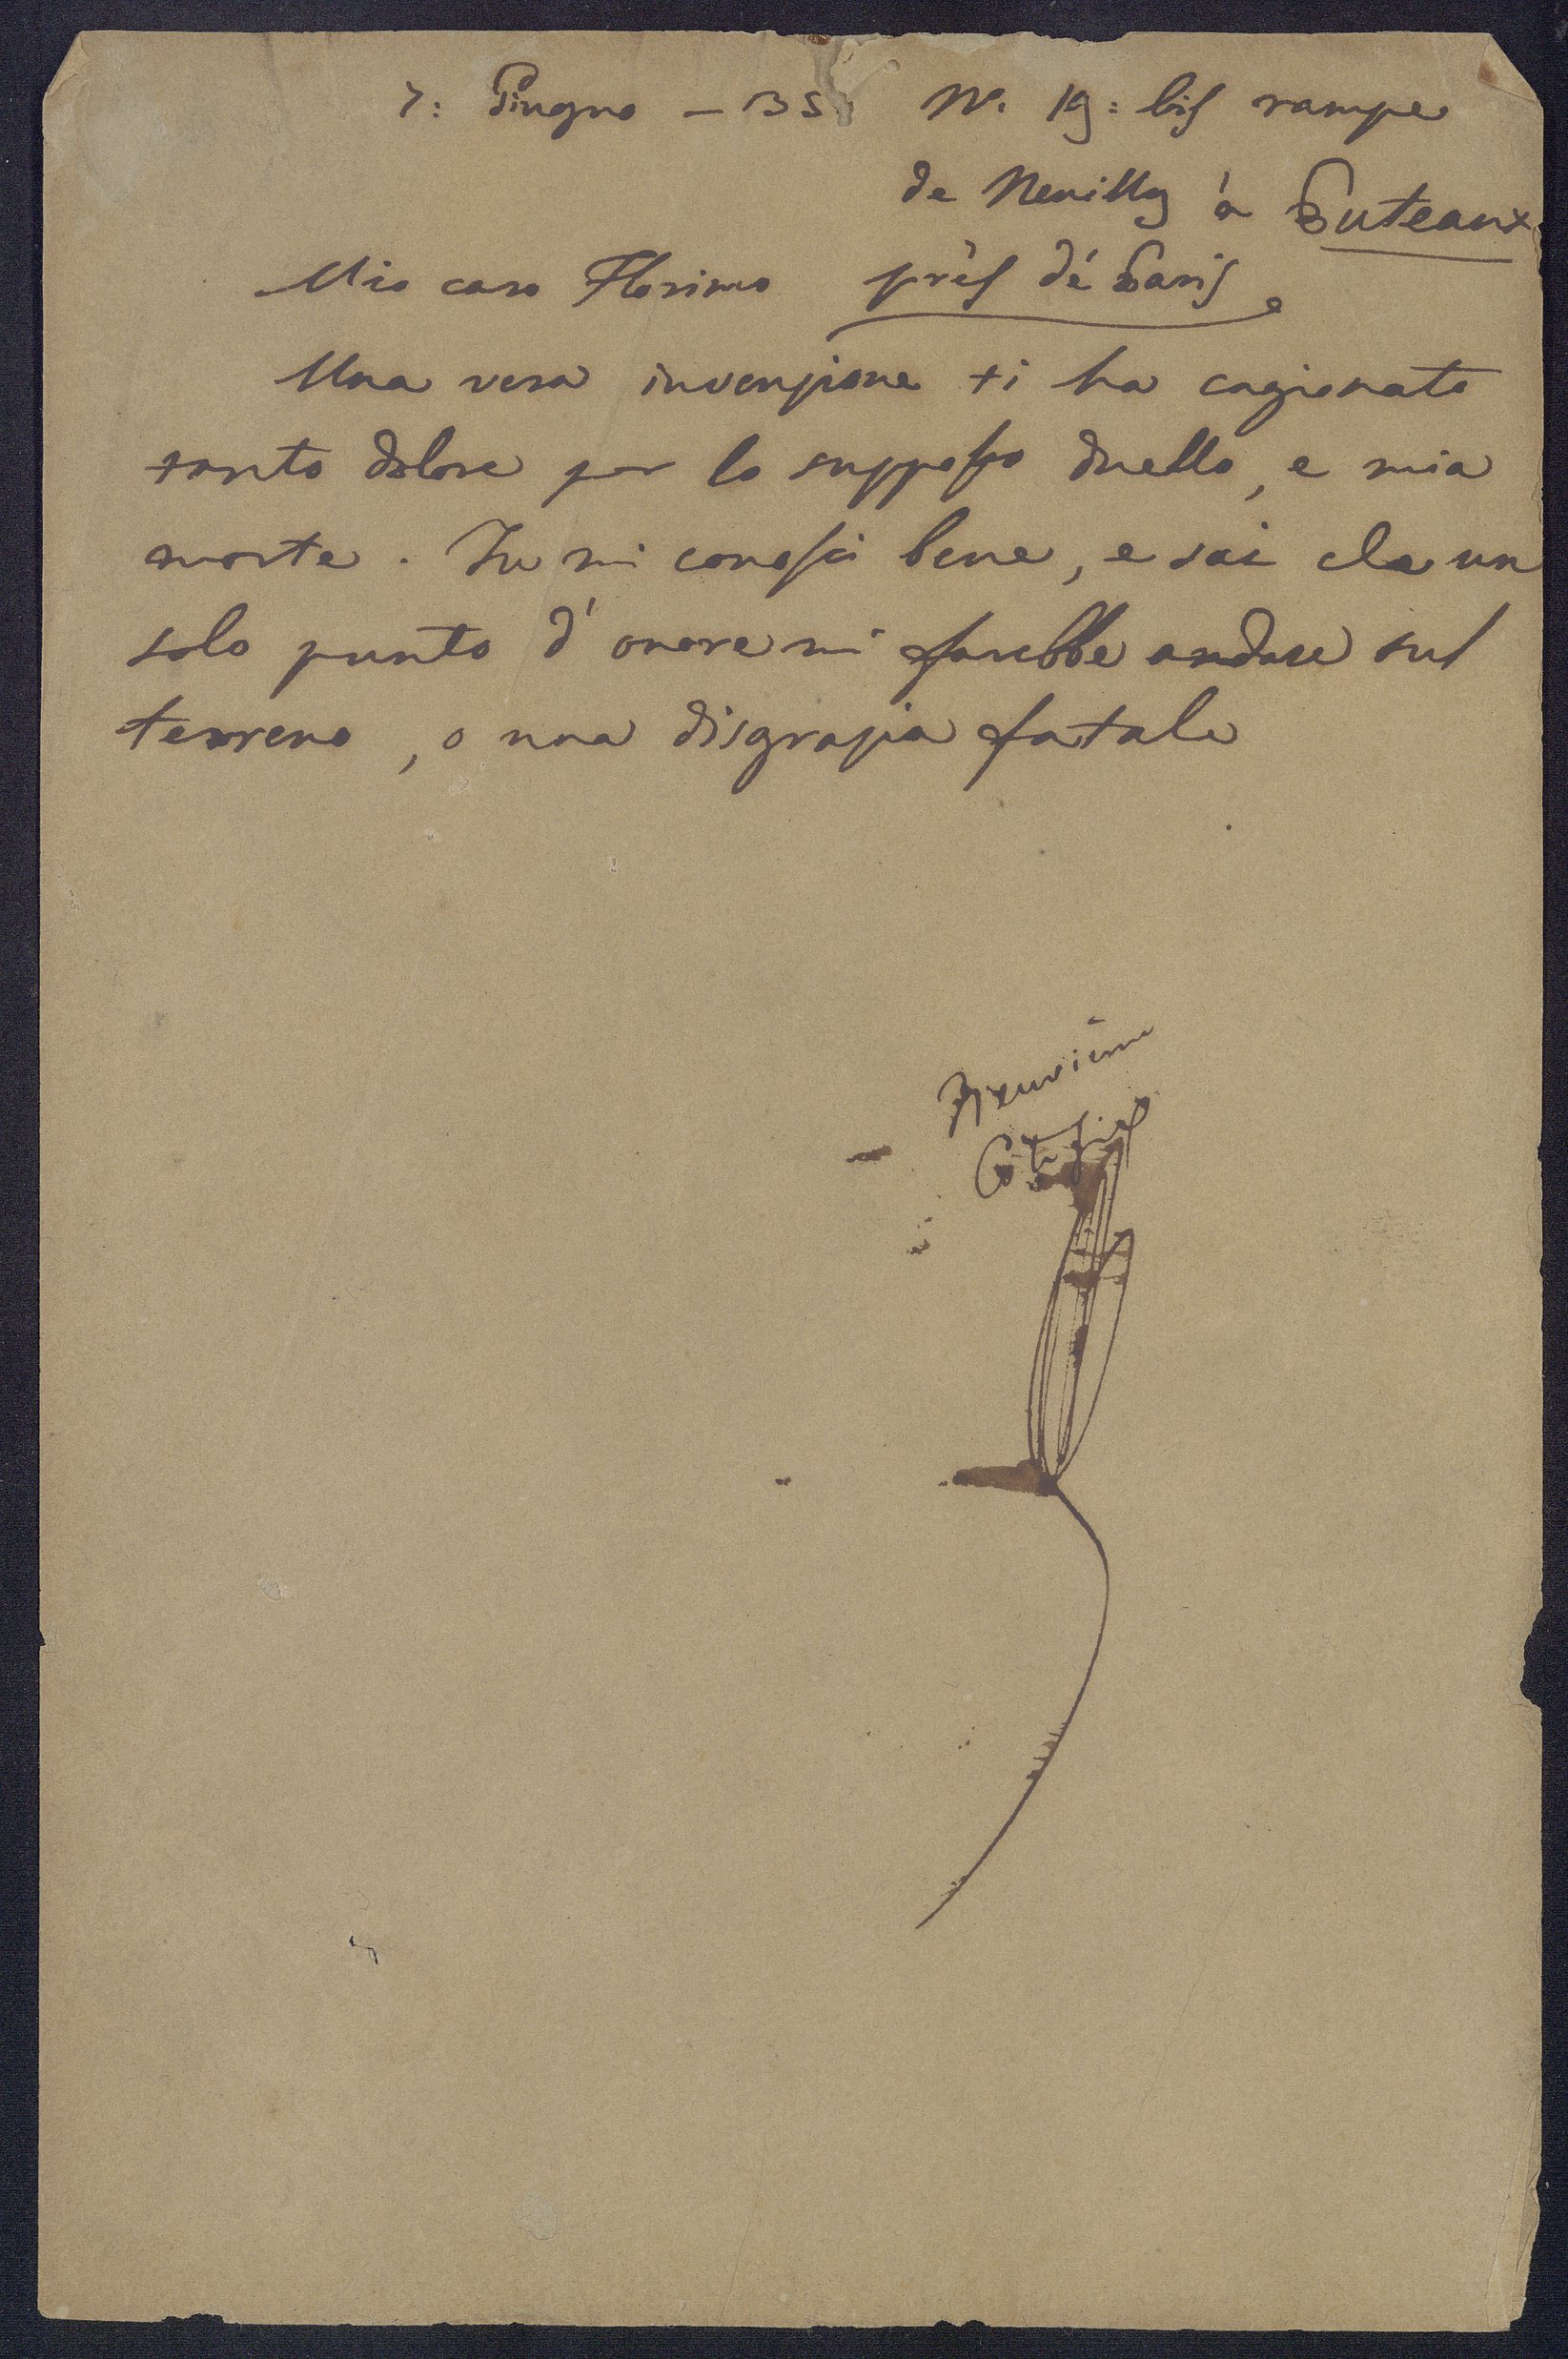 7: Giugno – 35 N.o 19: bis rampe
de Neuilly à Puteaux
Mio caro Florimo près dé Paris
Una vera invenzione ti ha cagionato
tanto dolore per lo supposto duello, e mia
morte. Tu mi conosci bene, e sai che un
solo punto d'onore mi farebbe andare sul
terreno, o una disgrazia fatale